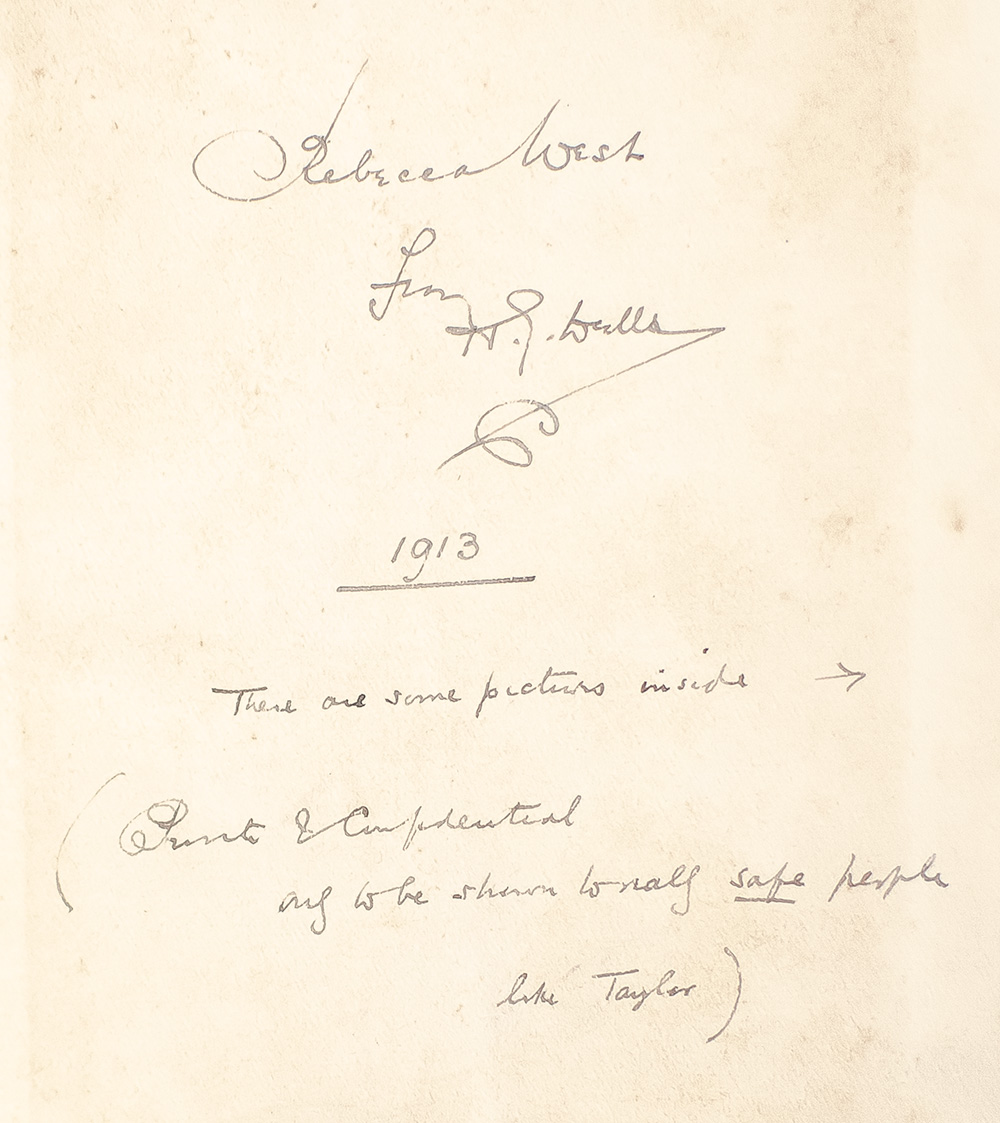 Rebecca West
from
H.G. Wells
1913
There are some pictures inside →
(Private & Confidential
only to be shown to really safe people
like Taylor)